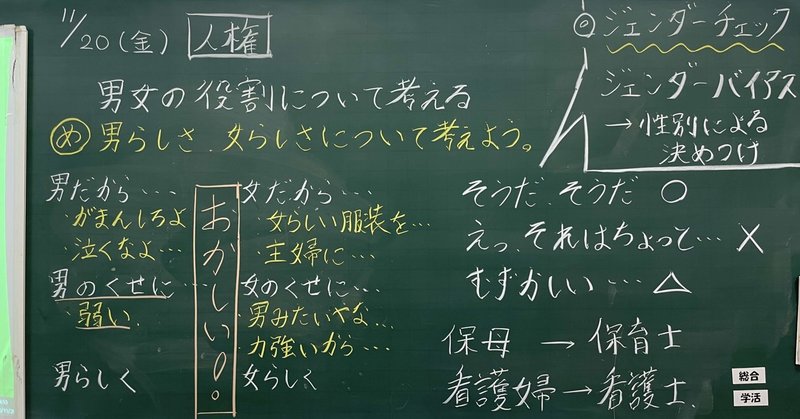 11/20（金） 人権
男女の役割について考える
め 男らしさ、女らしさについて考えよう。
男だから…
・がまんしろよ
・泣くなよ…
男のくせに…
・弱い
男らしく
おかしい！。
女だから…
・女らしい服装を…
・主婦に…
女のくせに…
・男みたいやな…
・力強いから…
女らしく
◎ジェンダーチェック
ジェンダーバイアス
→性別による
決めつけ
そうだ、そうだ ○
えっ、それはちょっと… ×
むずかしい… △
保母 → 保育士
看護婦→看護士
総合
学活